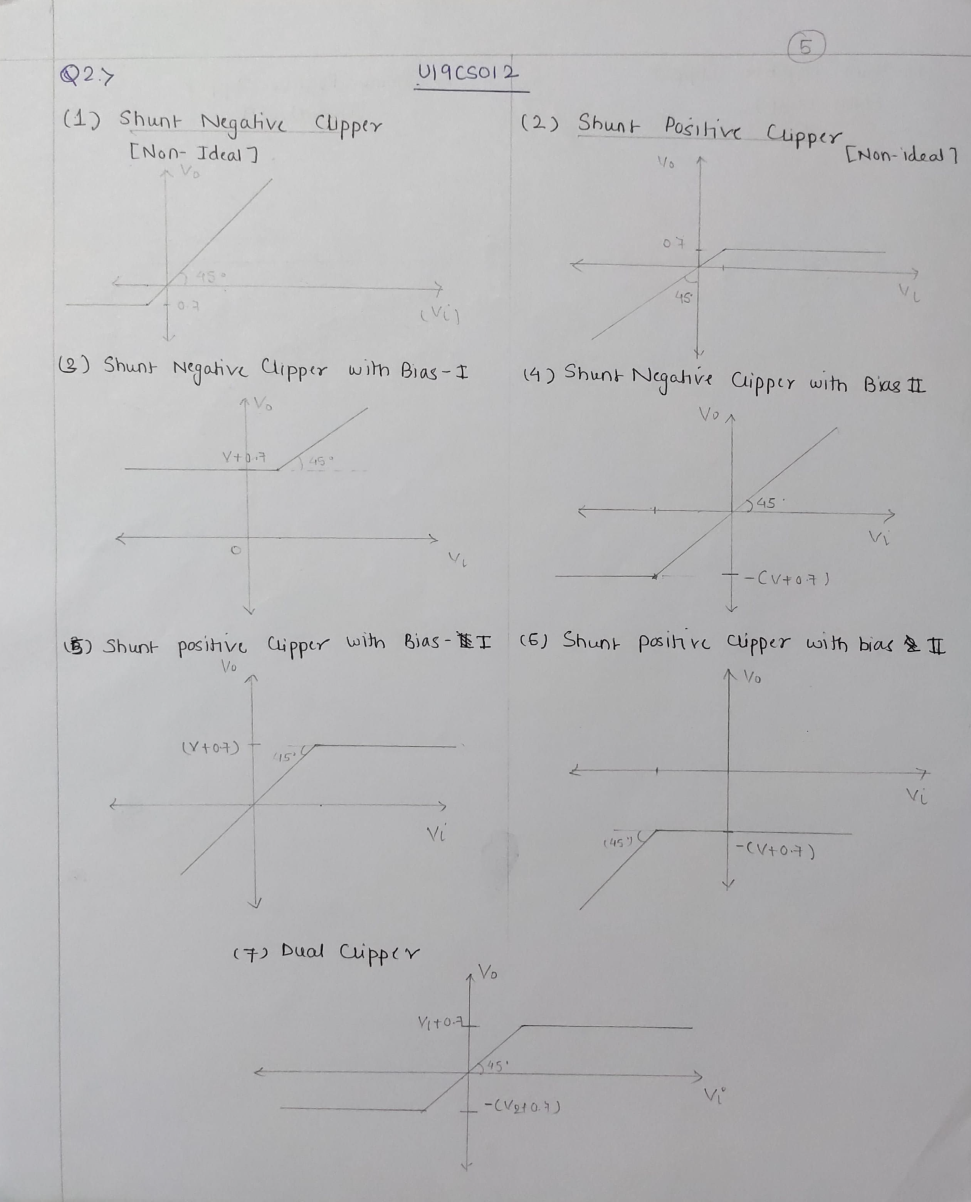 5
Q2.> U19CS012
(1) Shunt Negative Clipper
[Non-Ideal]
Vo
45°
0.7
(Vi)
(2) Shunt Positive Clipper
[Non-ideal]
Vo
0.7
45
Vi
(3) Shunt Negative Clipper with Bias-I
Vo
V+0.7
45°
0
Vi
(4) Shunt Negative Clipper with Bias II
Vo
45°
Vi
-(V+0.7)
(5) Shunt positive Clipper with Bias-I
Vo
(V+0.7)
45°
Vi
(6) Shunt positive Clipper with bias II
Vo
Vi
(45°)
-(V+0.7)
(7) Dual Clipper
Vo
V1+0.7
45°
Vi
-(V2+0.7)